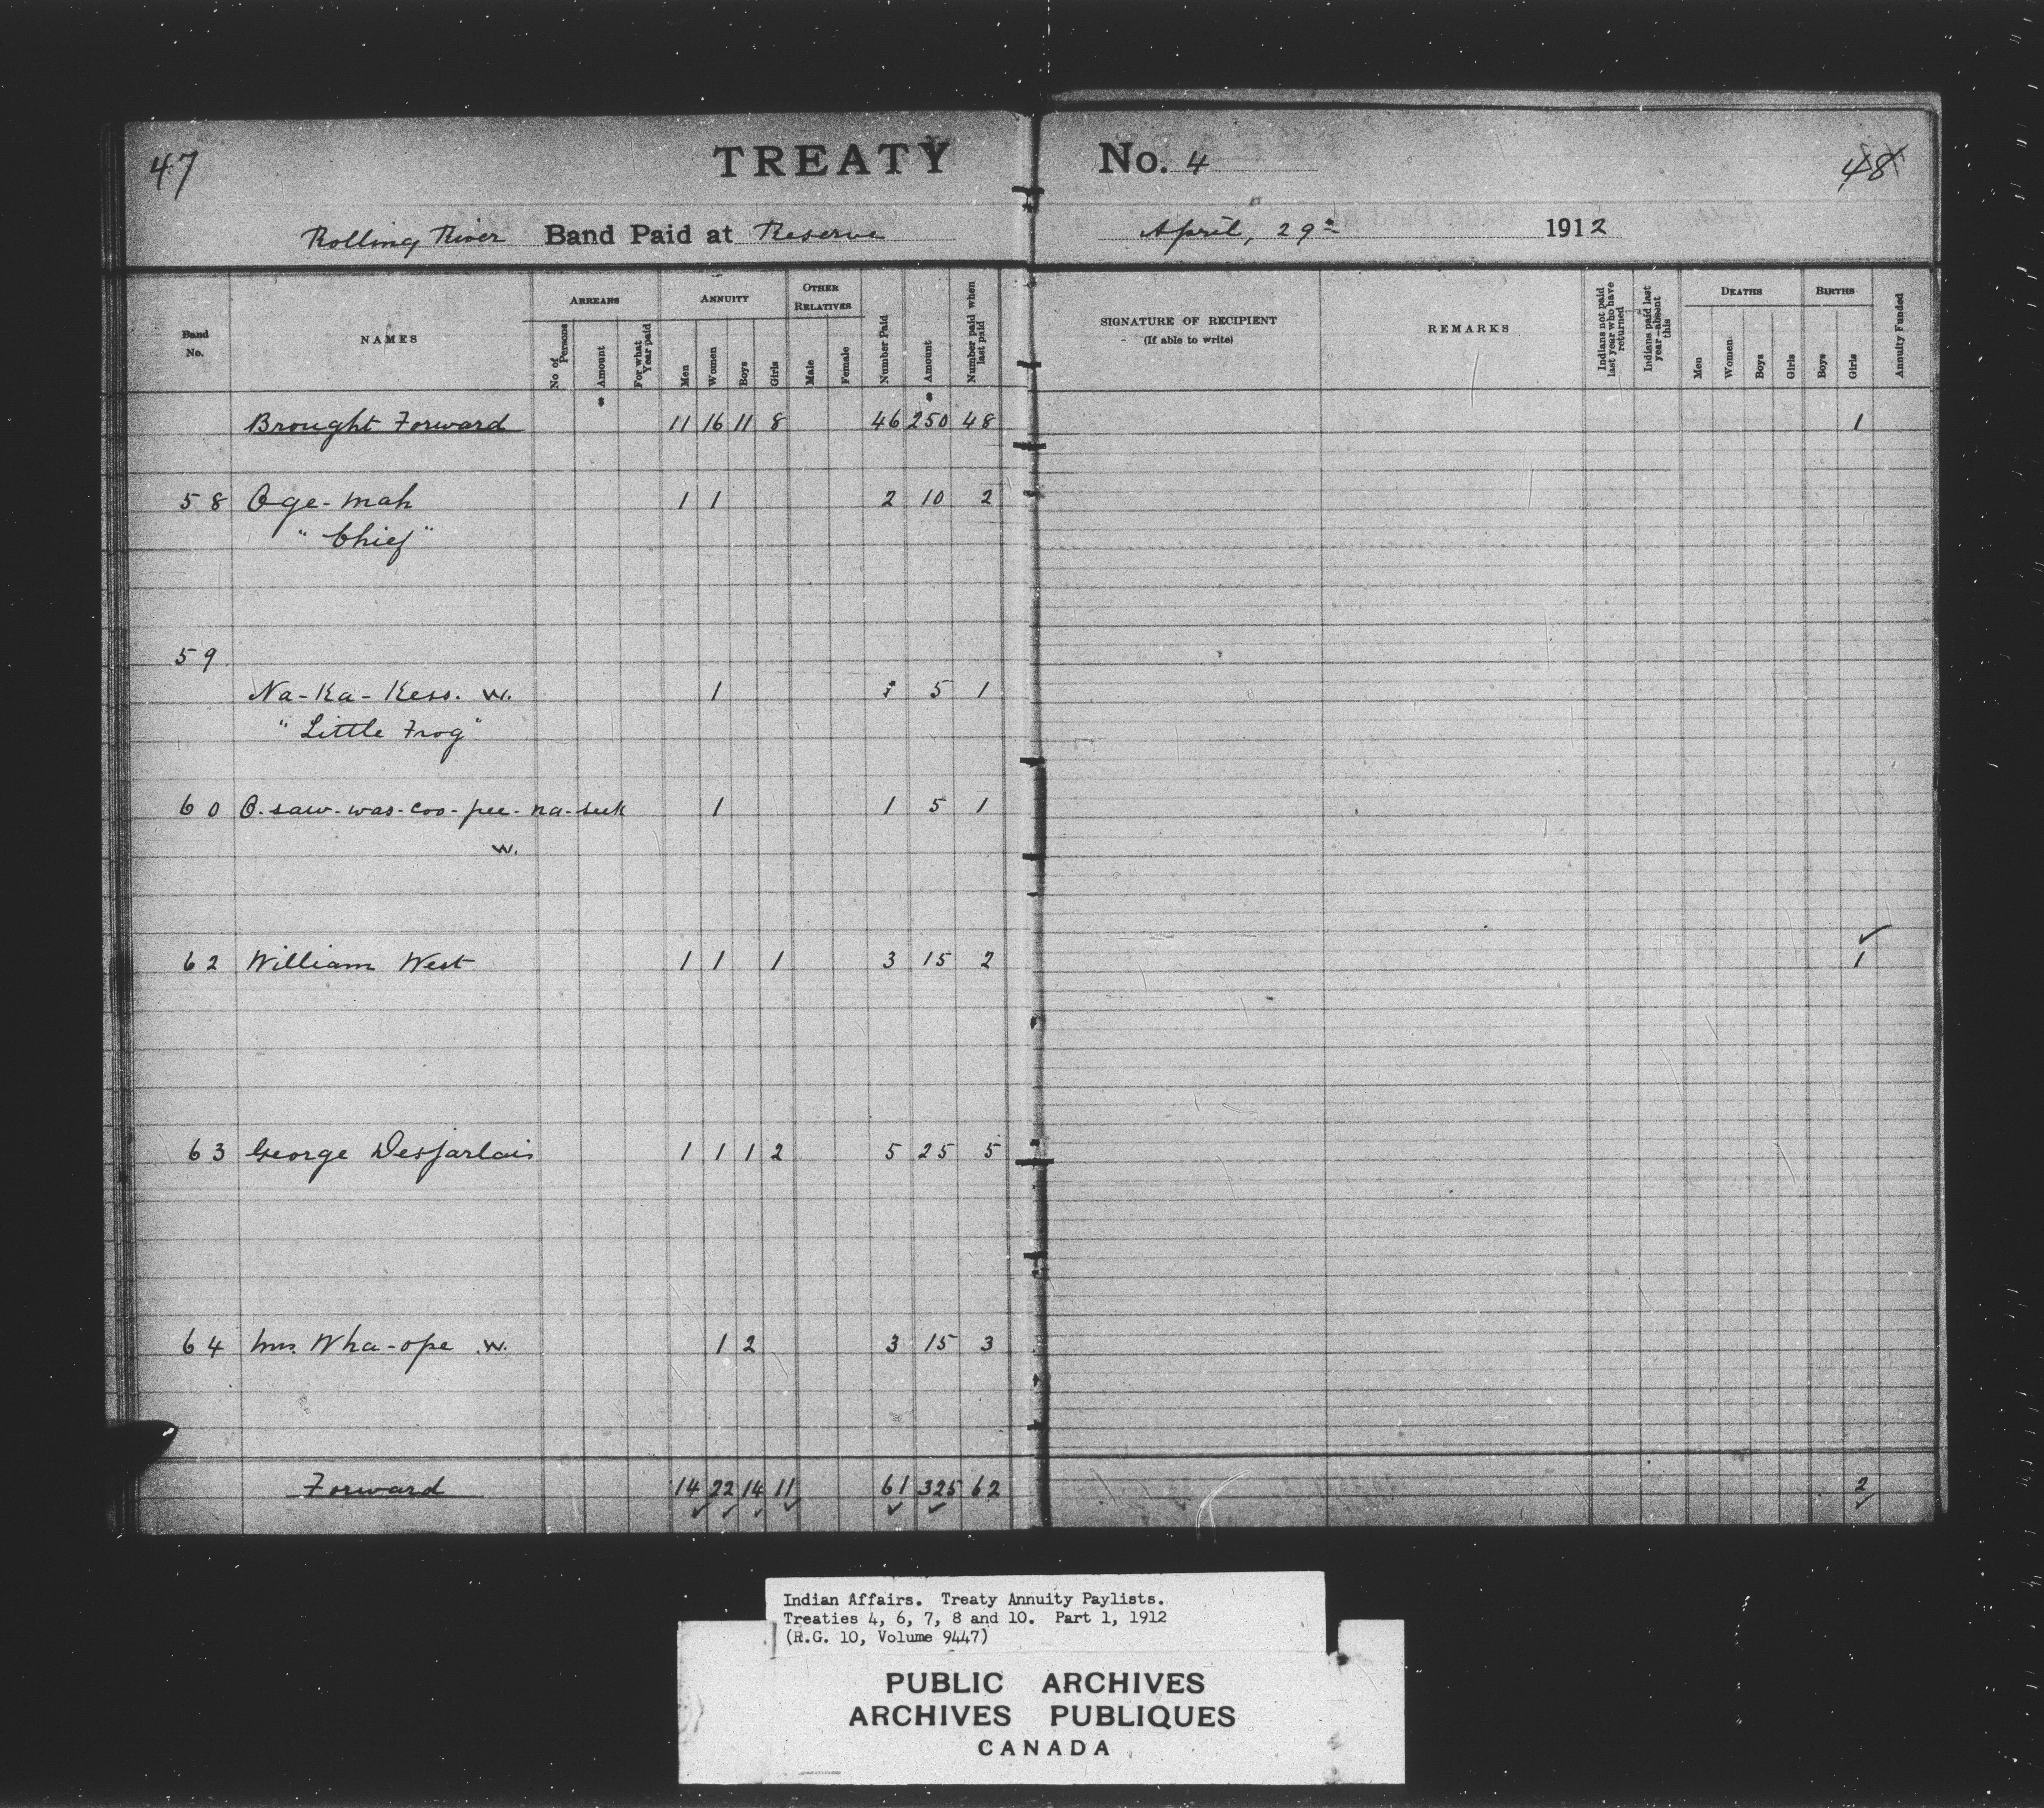 47
TREATY No. 4
48
Rolling River Band Paid at Reserve April, 29th 1912
Band No.
NAMES
ARREARS
No of Persons
Amount
For what Year paid
ANNUITY
Men
Women
Boys
Girls
OTHER RELATIVES
Male
Female
Number Paid
Amount
Number paid when last paid
SIGNATURE OF RECIPIENT
(If able to write)
REMARKS
Indians not paid last year who have returned
Indians paid last year—absent this
DEATHS
Men
Women
Boys
Girls
BIRTHS
Boys
Girls
Annuity Funded
$ $
Brought Forward 11 16 11 8 46 250 48 1
58 O-ge-mah 1 1 2 10 2
"Chief"
59
Na-Ka-Kess. W. 1 1 5 1
"Little Frog"
60 O-saw-was-coo-pee-na-seek 1 1 5 1
W.
62 William West 1 1 1 3 15 2 1
63 George Desjarlais 1 1 1 2 5 25 5
64 Mrs. Wha-ope W. 1 2 3 15 3
Forward 14 22 14 11 61 325 62 2
Indian Affairs. Treaty Annuity Paylists.
Treaties 4, 6, 7, 8 and 10. Part 1, 1912
(R.G. 10, Volume 9447)
PUBLIC ARCHIVES
ARCHIVES PUBLIQUES
CANADA